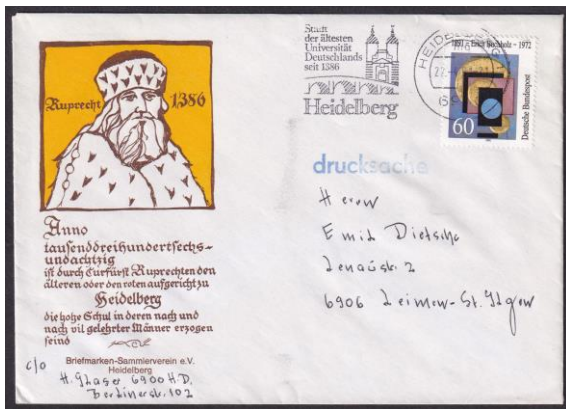 Ruprecht 1386
Anno
tausenddreihundertsechs-
undachtzig
ist durch Curfürst Ruprechten den
älteren oder den roten aufgericht zu
Heidelberg
die hohe Schul in deren nach und
nach vil gelehrter Männer erzogen
seind
Briefmarken-Sammlerverein e.V.
Heidelberg
c/o
H. Glaser 6900 H.D.
Berlinerstr. 102
Stadt
der ältesten
Universität
Deutschlands
seit 1386
Heidelberg
HEIDELBERG
1891 · Erich Buchholz · 1972
Deutsche Bundespost
60
drucksache
Herrn
Emil Dietsche
Lenaustr. 2
6906 Leimen-St. Ilgen